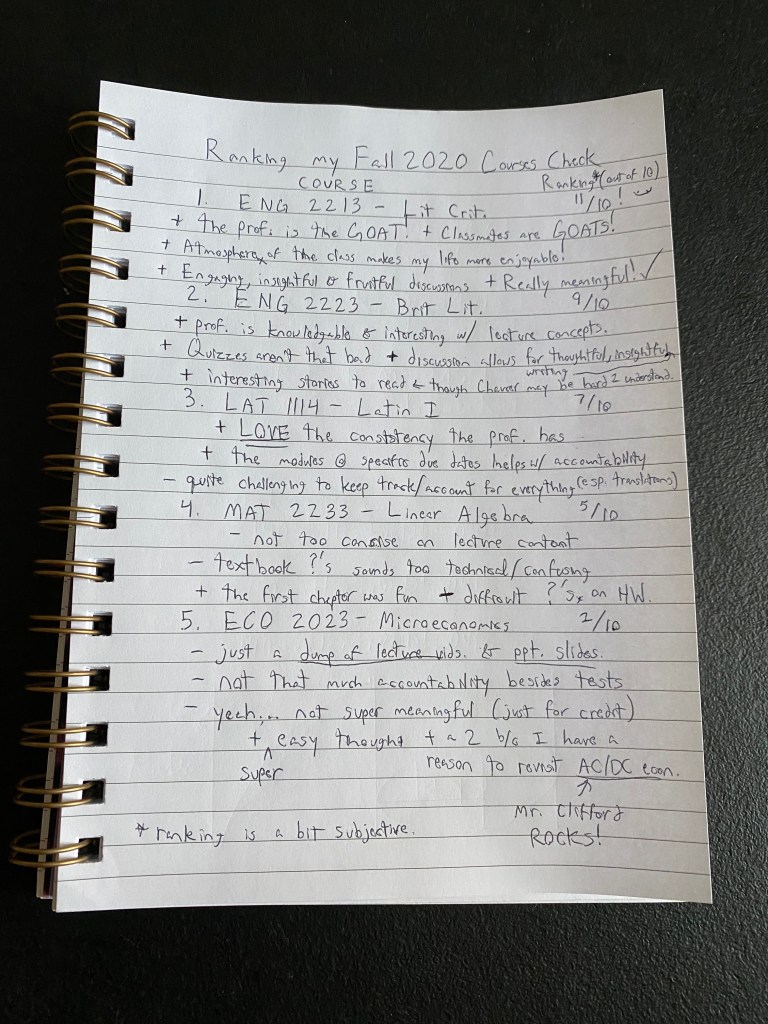 Ranking my Fall 2020 Courses Check
COURSE Ranking*(out of 10)
1. ENG 2213 - Lit Crit. 11/10!
+ the prof. is the GOAT! + Classmates are GOATS!
+ Atmosphere of the class makes my life more enjoyable!
+ Engaging, insightful & fruitful discussions + Really meaningful! ✓
2. ENG 2223 - Brit Lit. 9/10
+ prof. is knowledgable & interesting w/ lecture concepts.
+ Quizzes aren't that bad + discussion allows for thoughtful, insightful
writing
+ interesting stories to read ← though Chaucer may be hard 2 understand.
3. LAT 1114 - Latin I 7/10
+ LOVE the consistency the prof. has
+ the modules @ specific due dates helps w/ accountability
- quite challenging to keep track/account for everything (esp. translations)
4. MAT 2233 - Linear Algebra 5/10
- not too consise on lecture content
- textbook ?'s sounds too technical/confusing
+ the first chapter was fun + difficult ?'s on HW.
5. ECO 2023 - Microeconomics 2/10
- just a dump of lecture vids. & ppt. slides.
- not that much accountability besides tests
- yeah... not super meaningful (just for credit)
+ easy thought + a 2 b/c I have a
super reason to revisit AC/DC econ.
Mr. Clifford
* ranking is a bit subjective. ROCKS!